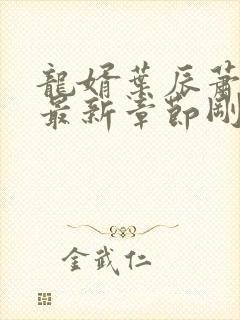 龍婿葉辰蕭
最新章節剛
金武仁